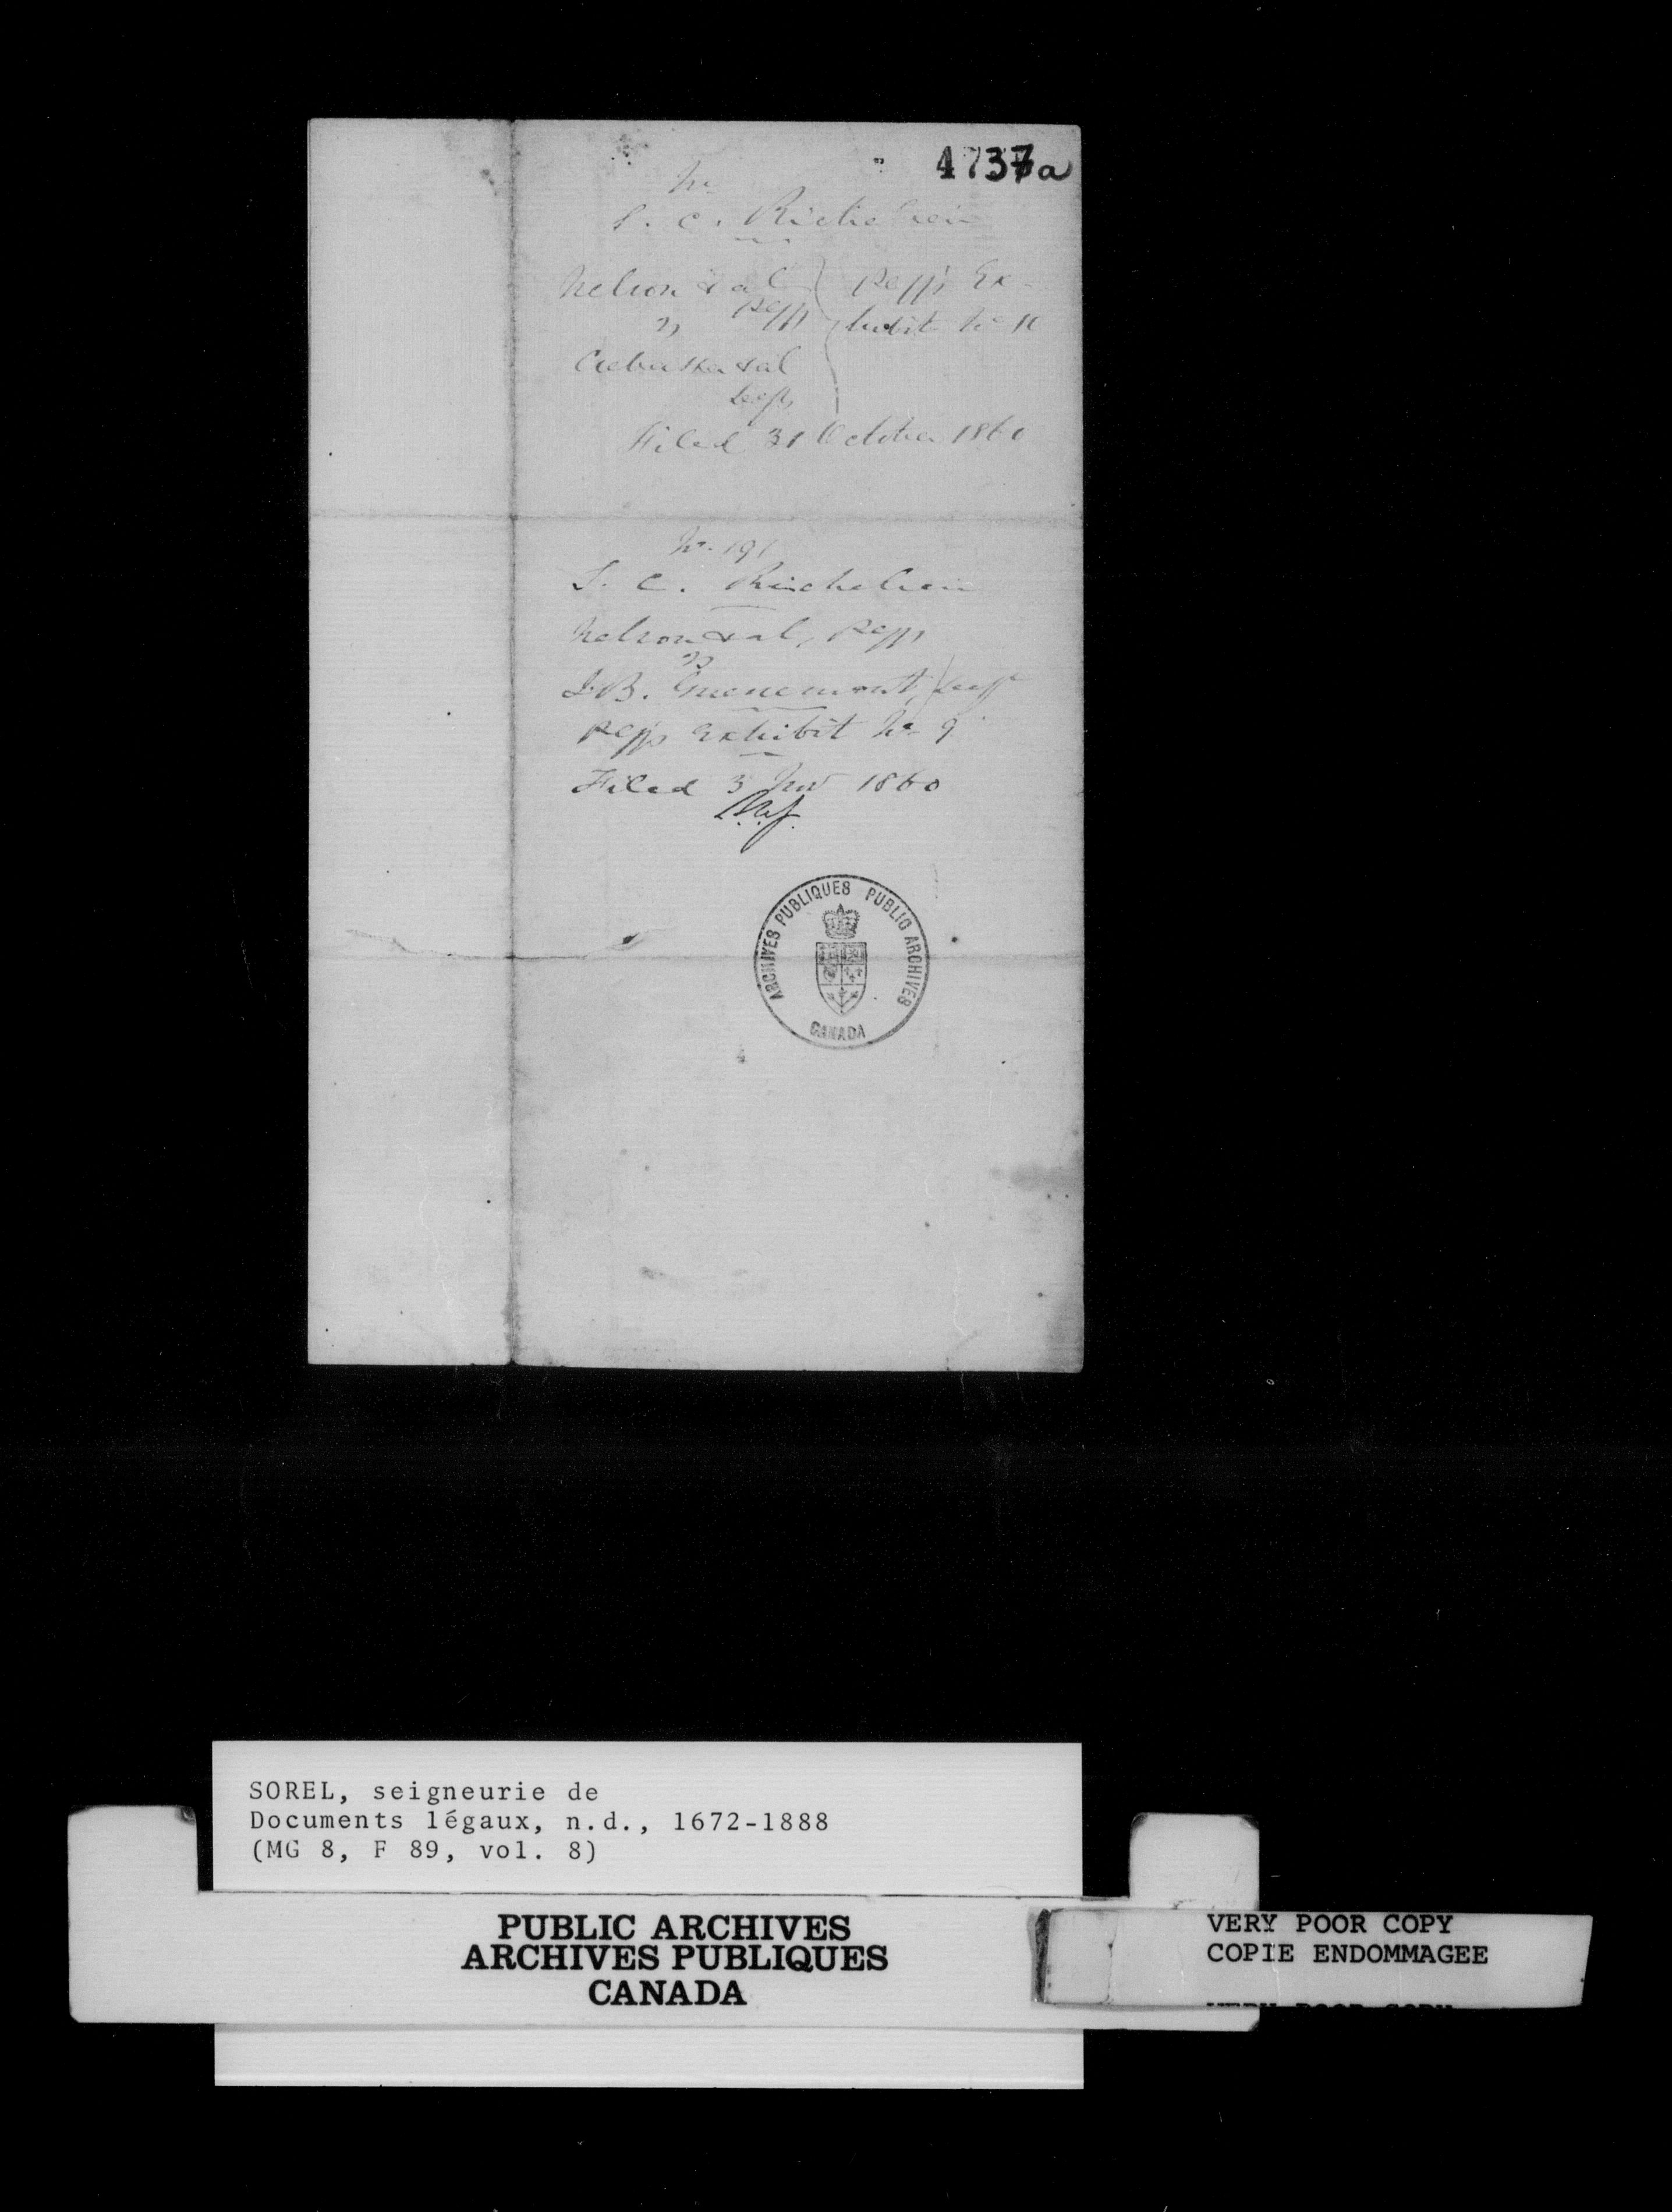 4737a
No
S. C. Richelieu
Nelson & al } Plffs Ex-
Plffs } hibit No 10
vs
& al
Defts
Filed 31 October 1860
No. 191
S. C. Richelieu
Nelson & al, Plffs
vs
J. B. Guenemont, Deft
Plffs Exhibit No 9
Filed 3 Nov 1860
ARCHIVES PUBLIQUES PUBLIC ARCHIVES
CANADA
SOREL, seigneurie de
Documents légaux, n.d., 1672-1888
(MG 8, F 89, vol. 8)
PUBLIC ARCHIVES
ARCHIVES PUBLIQUES
CANADA
VERY POOR COPY
COPIE ENDOMMAGEE
VERY POOR COPY